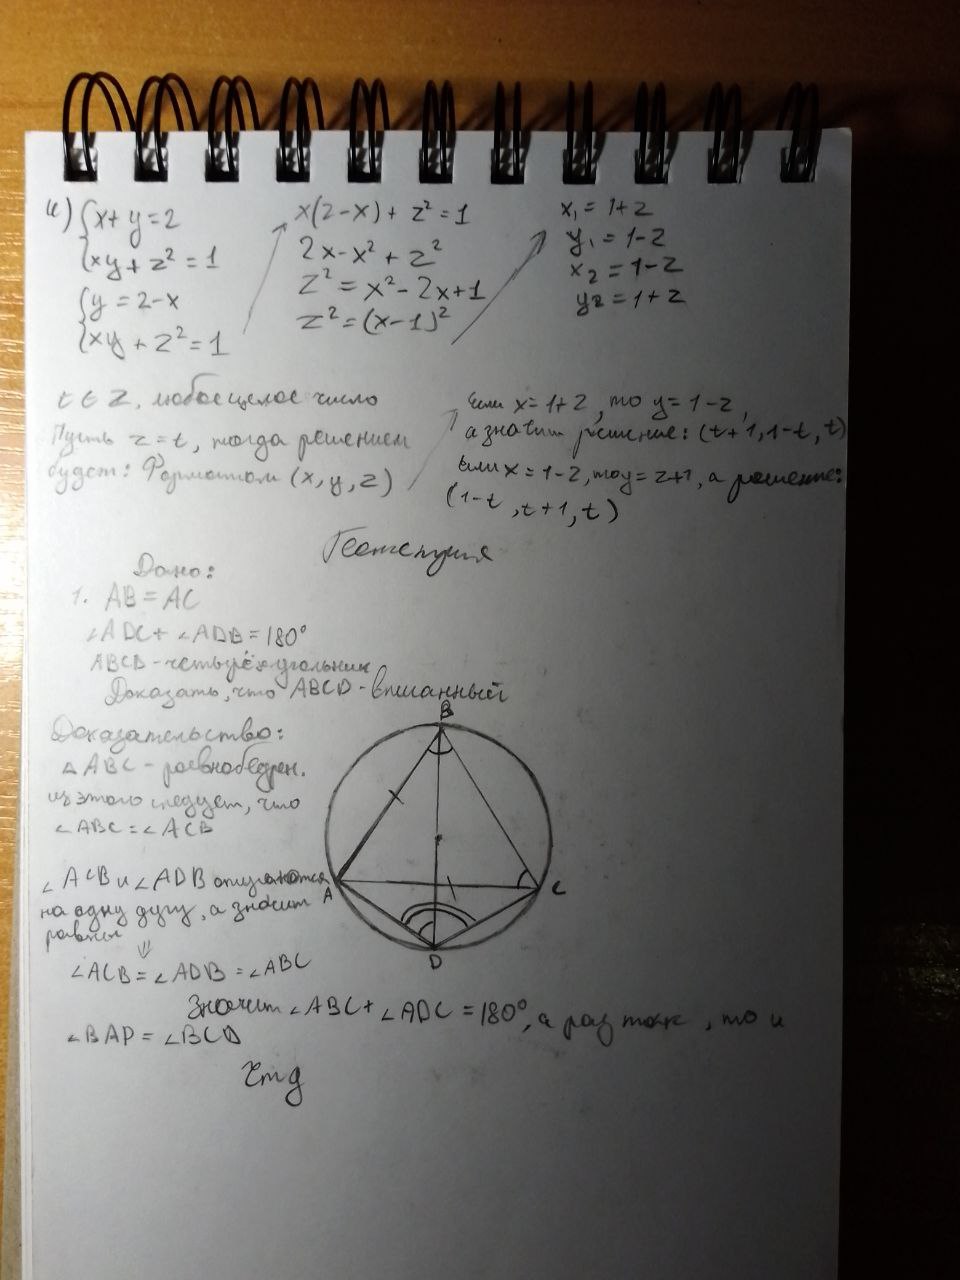 и) {x+y=2
{xy+z²=1
{y=2-x
{xy+z²=1
x(2-x)+z²=1
2x-x²+z²
z²=x²-2x+1
z²=(x-1)²
x₁=1+z
y₁=1-z
x₂=1-z
y₂=1+z
t∈Z, любое целое число
Пусть z=t, тогда решением
будет: Форматом (x,y,z)
Если x=1+z, то y=1-z,
а значит решение: (t+1,1-t,t)
Если x=1-z, то y=z+1, а решение:
(1-t,t+1,t)
Геометрия
Дано:
1. AB=AC
∠ADC+∠ADB=180°
ABCD-четырёхугольник
Доказать, что ABCD-вписанный
Доказательство:
△ABC-равнобедрен.
из этого следует, что
∠ABC=∠ACB
∠ACB и ∠ADB опираются
на одну дугу, а значит
равны
⇓
∠ACB=∠ADB=∠ABC
Значит ∠ABC+∠ADC=180°, а раз так, то и
∠BAD=∠BCD
Чтд
B
A
C
D